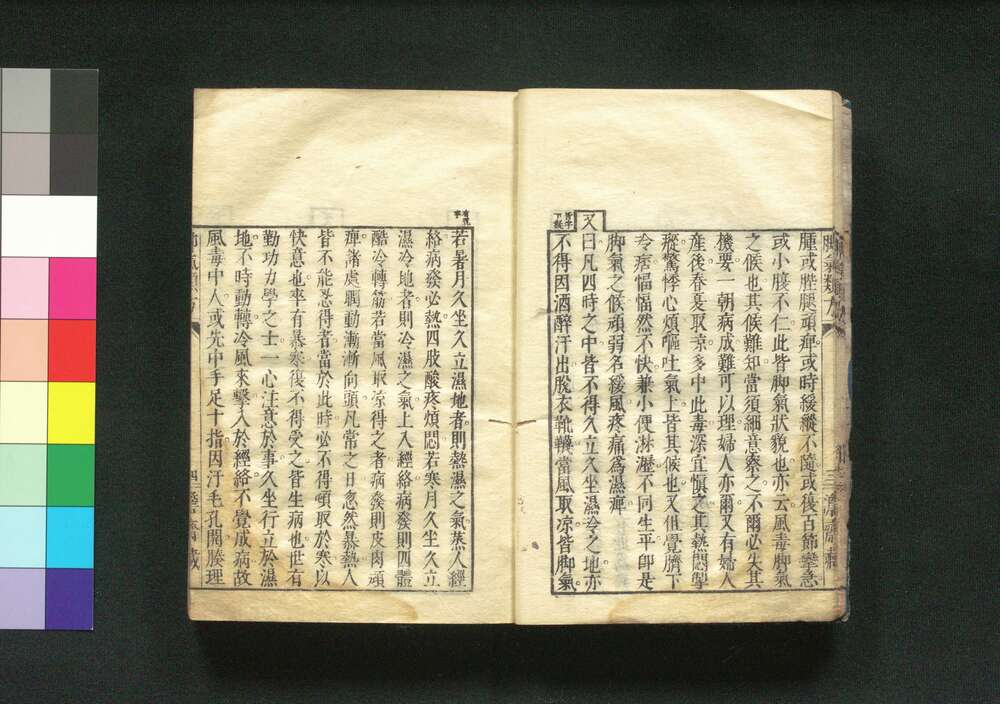 脚氣類方
腫或䏶腿頑痺或時緩縱不隨或復百節攣急
或小腹不仁此皆脚氣狀貌也亦云風毒脚氣
之候也其候難知當須細意察之不爾必失其
機要一朝病成難可以理婦人亦爾又有婦人
產後春夏取凉多中此毒深宜愼之其熱悶掣
瘲驚悸心煩嘔吐氣上皆其候也又但覺臍下
冷痞愊愊然不快兼小便淋瀝不同生平卽是
脚氣之候頑弱名緩風疼痛爲濕痺
又曰凡四時之中皆不得久立久坐濕冷之地亦
不得因酒醉汗出脫衣靴韈當風取凉皆脚氣
若暑月久坐久立濕地者則熱濕之氣蒸人經
絡病發必熱四肢酸疼煩悶若寒月久坐久立
濕冷地者則冷濕之氣上入經絡病發則四體
酷冷轉筋若當風取凉得之者病發則皮肉頑
痺諸處瞤動漸漸向頭凡常之日忽然暴熱人
皆不能忍得者當於此時必不得頓取於寒以
快意也卒有暴寒復不得受之皆生病也世有
勤功力學之士一心注意於事久坐行立於濕
地不時動轉冷風來擊入於經絡不覺成病故
風毒中人或先中手足十指因汗毛孔開腠理